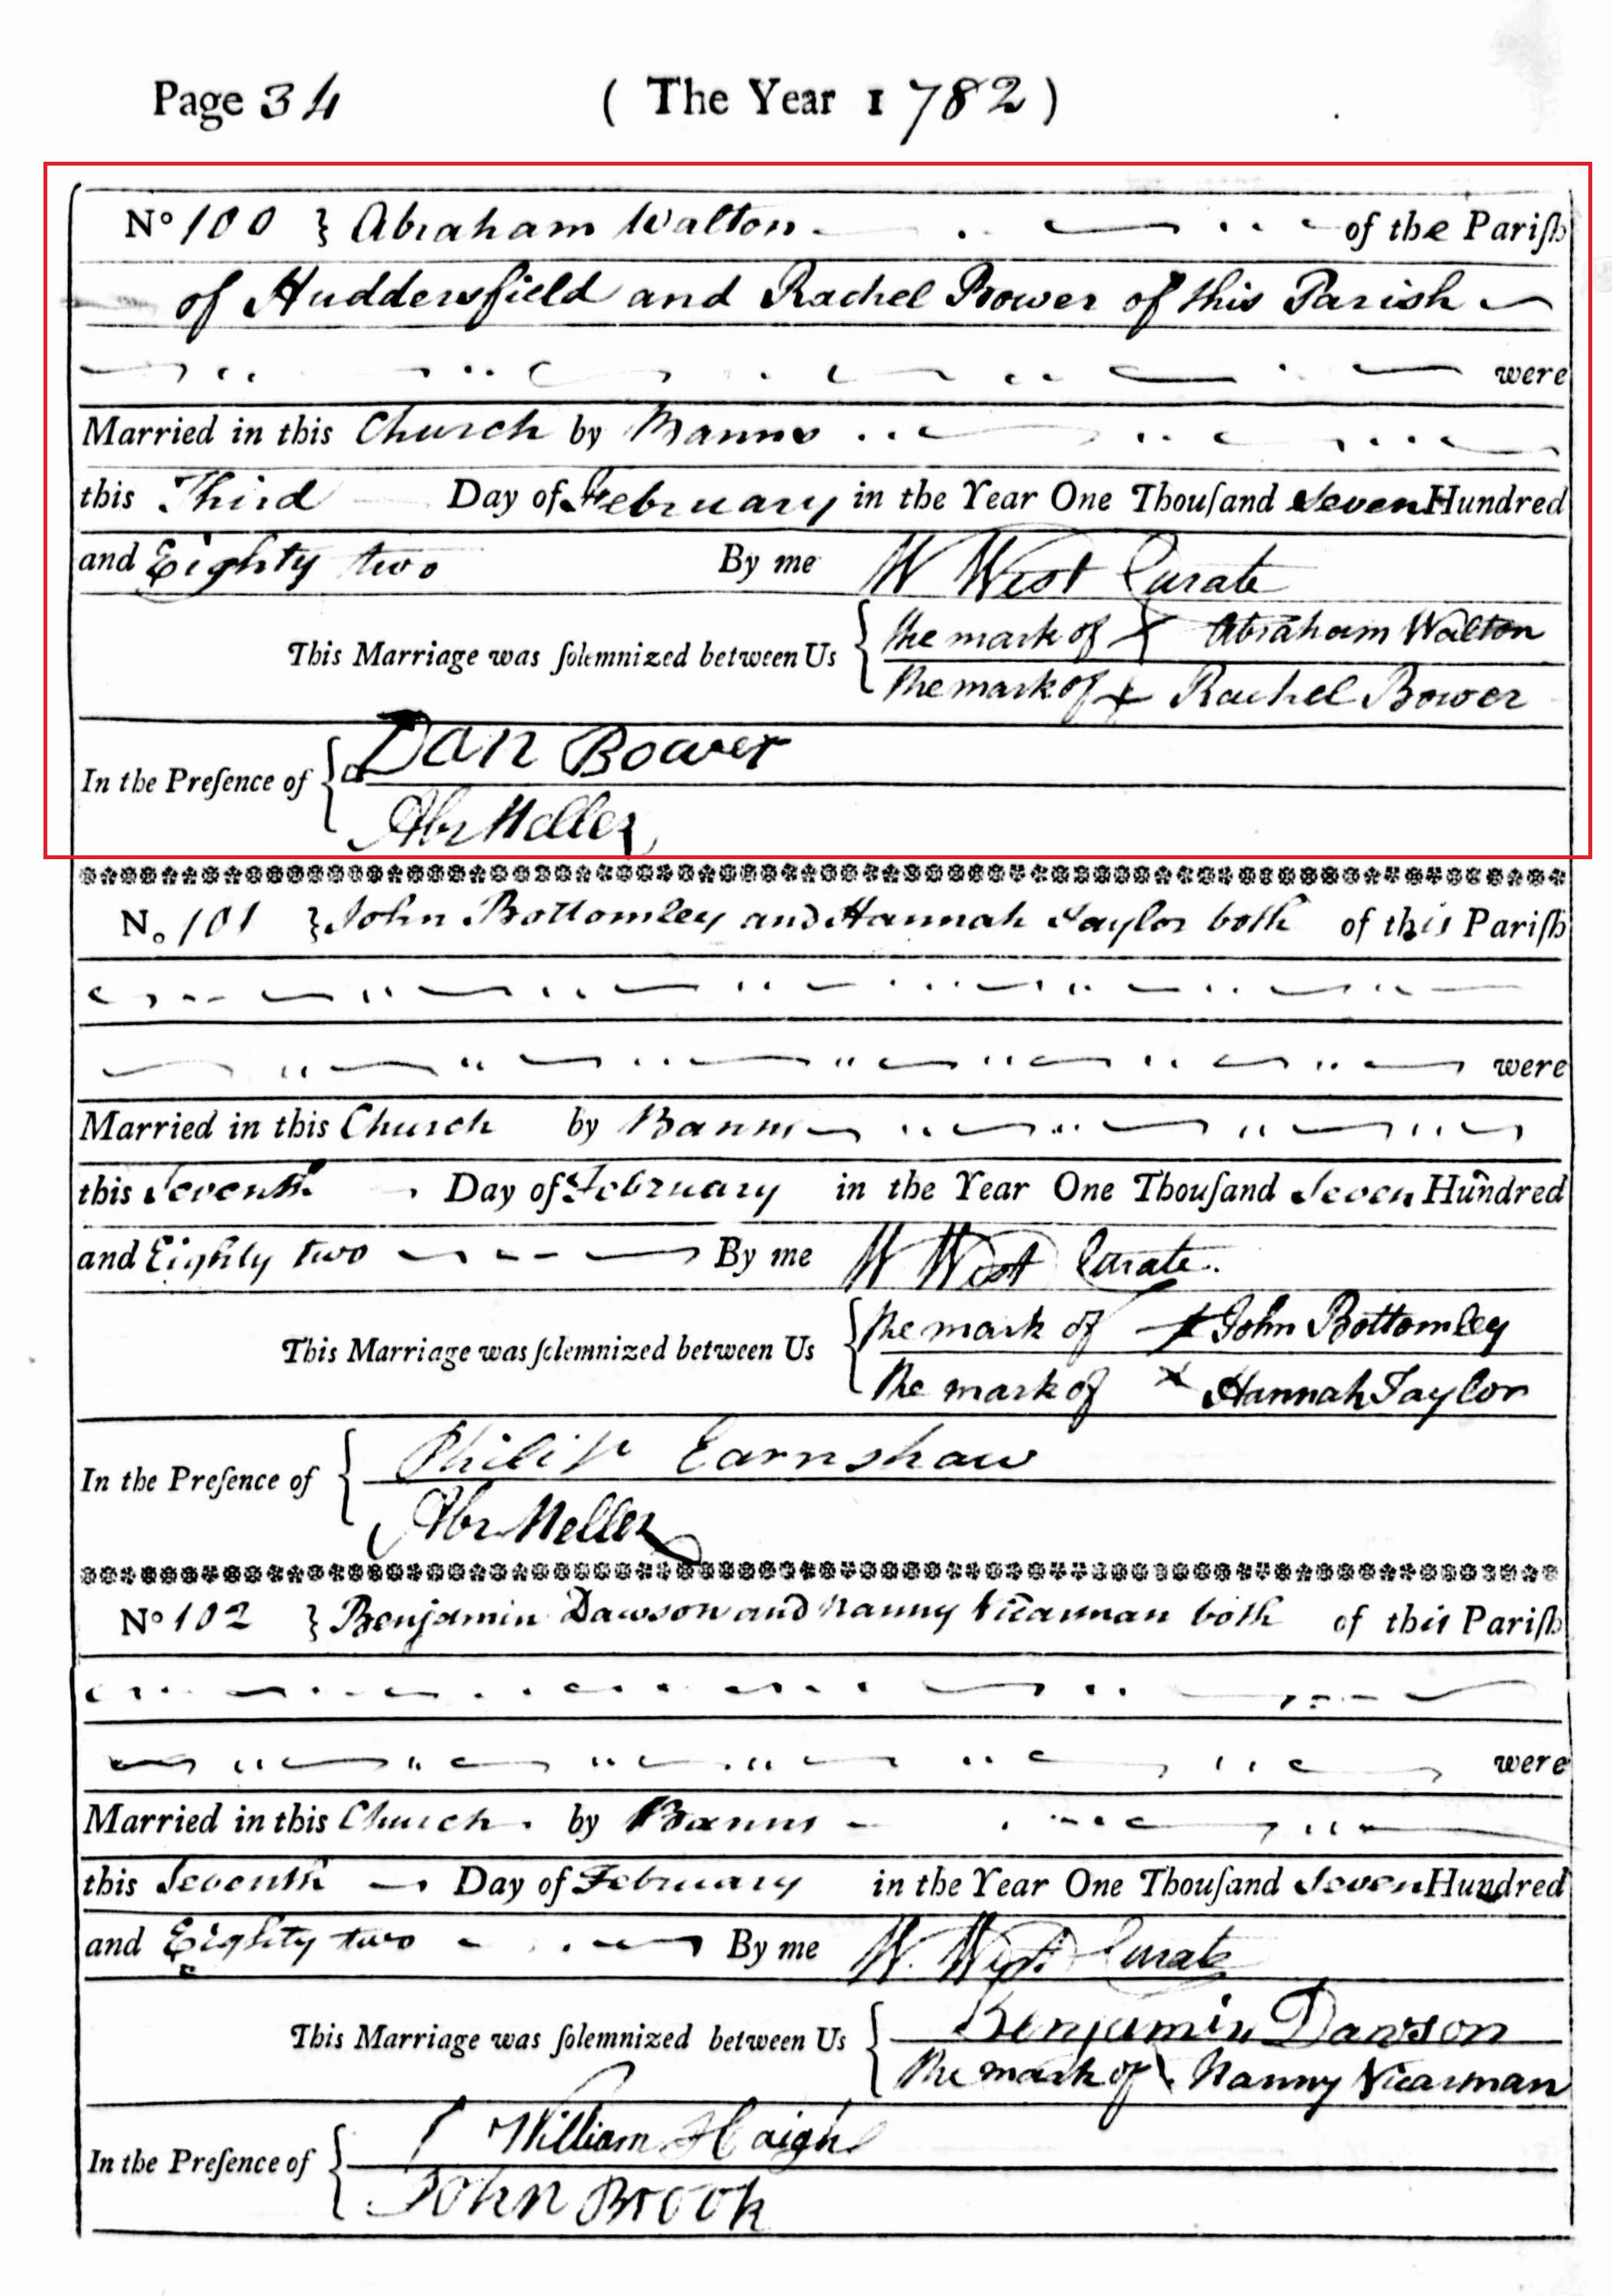 Page 34 ( The Year 1782 )
No 100 } Abraham Walton of the Pariſh
of Huddersfield and Rachel Bower of this Parish
were
Married in this Church by Banns
this Third Day of February in the Year One Thouſand Seven Hundred
and Eighty two By me W West Curate
This Marriage was ſolemnized between Us { the mark of X Abraham Walton
the mark of X Rachel Bower
In the Preſence of { Dan Bower
Abr Meller
No 101 } John Bottomley and Hannah Taylor both of this Pariſh
were
Married in this Church by Banns
this Seventh Day of February in the Year One Thouſand Seven Hundred
and Eighty two By me W West Curate
This Marriage was ſolemnized between Us { the mark of X John Bottomley
the mark of X Hannah Taylor
In the Preſence of { Philip Earnshaw
Abr Meller
No 102 } Benjamin Dawson and Nanny Vicarman both of this Pariſh
were
Married in this Church by Banns
this Seventh Day of February in the Year One Thouſand Seven Hundred
and Eighty two By me W. West Curate
This Marriage was ſolemnized between Us { Benjamin Dawson
the mark of \ Nanny Vicarman
In the Preſence of { William Haigh
John Brook